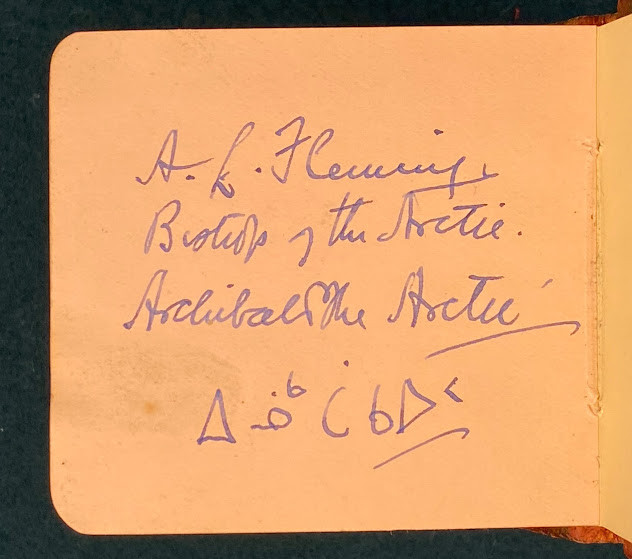 A. L. Fleming.
Bishop of the Arctic.
Archibald the Arctic
ᐃᓅᒃᑖᑲᐅᑉ